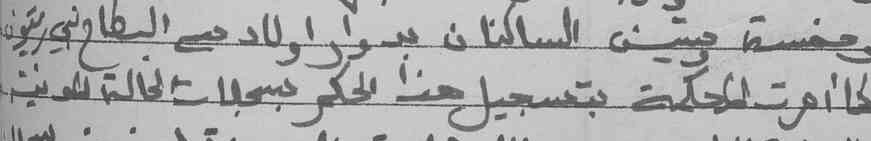 وخمسة وستين الساكنان بدوار اولاد سي البطاح بني زيتون
كما أمرت المحكمة بتسجيل هذا الحكم بسجلات الحالة المدنية